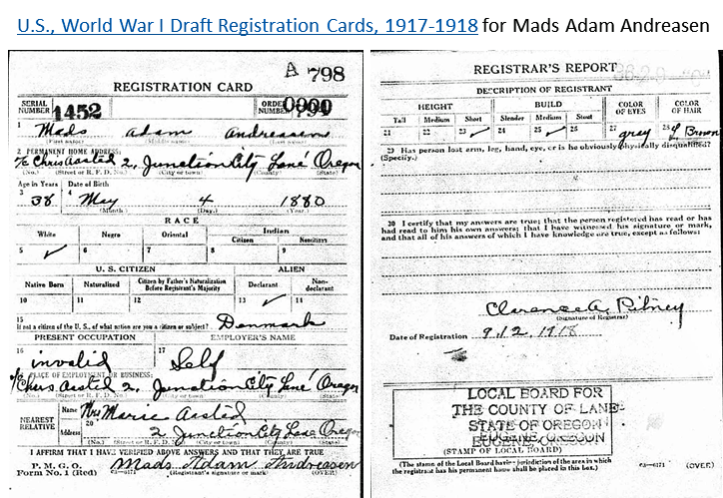 U.S., World War I Draft Registration Cards, 1917-1918 for Mads Adam Andreasen
A 798
REGISTRATION CARD
SERIAL NUMBER 1452 ORDER NUMBER
1 Mads adam andreasen
(First name) (Middle name) (Last name)
2 PERMANENT HOME ADDRESS:
℅ Chris Aasted 2, Junction City Lane Oregon
(No.) (Street or R. F. D. No.) (City or town) (County) (State)
Age in Years Date of Birth
3 38 4 May 4 1880
(Month) (Day) (Year)
RACE
White Negro Oriental Indian
Citizen Noncitizen
5 ✓ 6 7 8 9
U. S. CITIZEN ALIEN
Native Born Naturalized Citizen by Father's Naturalization Before Registrant's Majority Declarant Non-declarant
10 11 12 13 ✓ 14
15
If not a citizen of the U. S., of what nation are you a citizen or subject? Denmark
PRESENT OCCUPATION EMPLOYER'S NAME
16 invalid 17 Self
PLACE OF EMPLOYMENT OR BUSINESS:
℅ Chris Aasted 2, Junction City Lane Oregon
(No.) (Street or R. F. D. No.) (City or town) (County) (State)
NEAREST RELATIVE Name Mrs Marie Aasted
Address 20 2 Junction City Lane Oregon
(No.) (Street or R. F. D. No.) (City or town) (County) (State)
I AFFIRM THAT I HAVE VERIFIED ABOVE ANSWERS AND THAT THEY ARE TRUE
P. M. G. O.
Form No. 1 (Red) Mads Adam Andreasen
(Registrant's signature or mark) (OVER)
REGISTRAR'S REPORT
DESCRIPTION OF REGISTRANT
HEIGHT BUILD COLOR OF EYES COLOR OF HAIR
Tall Medium Short Slender Medium Stout
21 22 23 ✓ 24 25 ✓ 26 27 gray 28 Brown
29 Has person lost arm, leg, hand, eye, or is he obviously physically disqualified?
(Specify.)
30 I certify that my answers are true; that the person registered has read or has
had read to him his own answers; that I have witnessed his signature or mark,
and that all of his answers of which I have knowledge are true, except as follows:
Clarence A. Pitney
(Signature of Registrar)
Date of Registration 9/12/1918
LOCAL BOARD FOR
THE COUNTY OF LANE
STATE OF OREGON
EUGENE, OREGON
(STAMP OF LOCAL BOARD)
(The stamp of the Local Board having jurisdiction of the area in which
the registrant has his permanent home shall be placed in this box.)
(OVER)